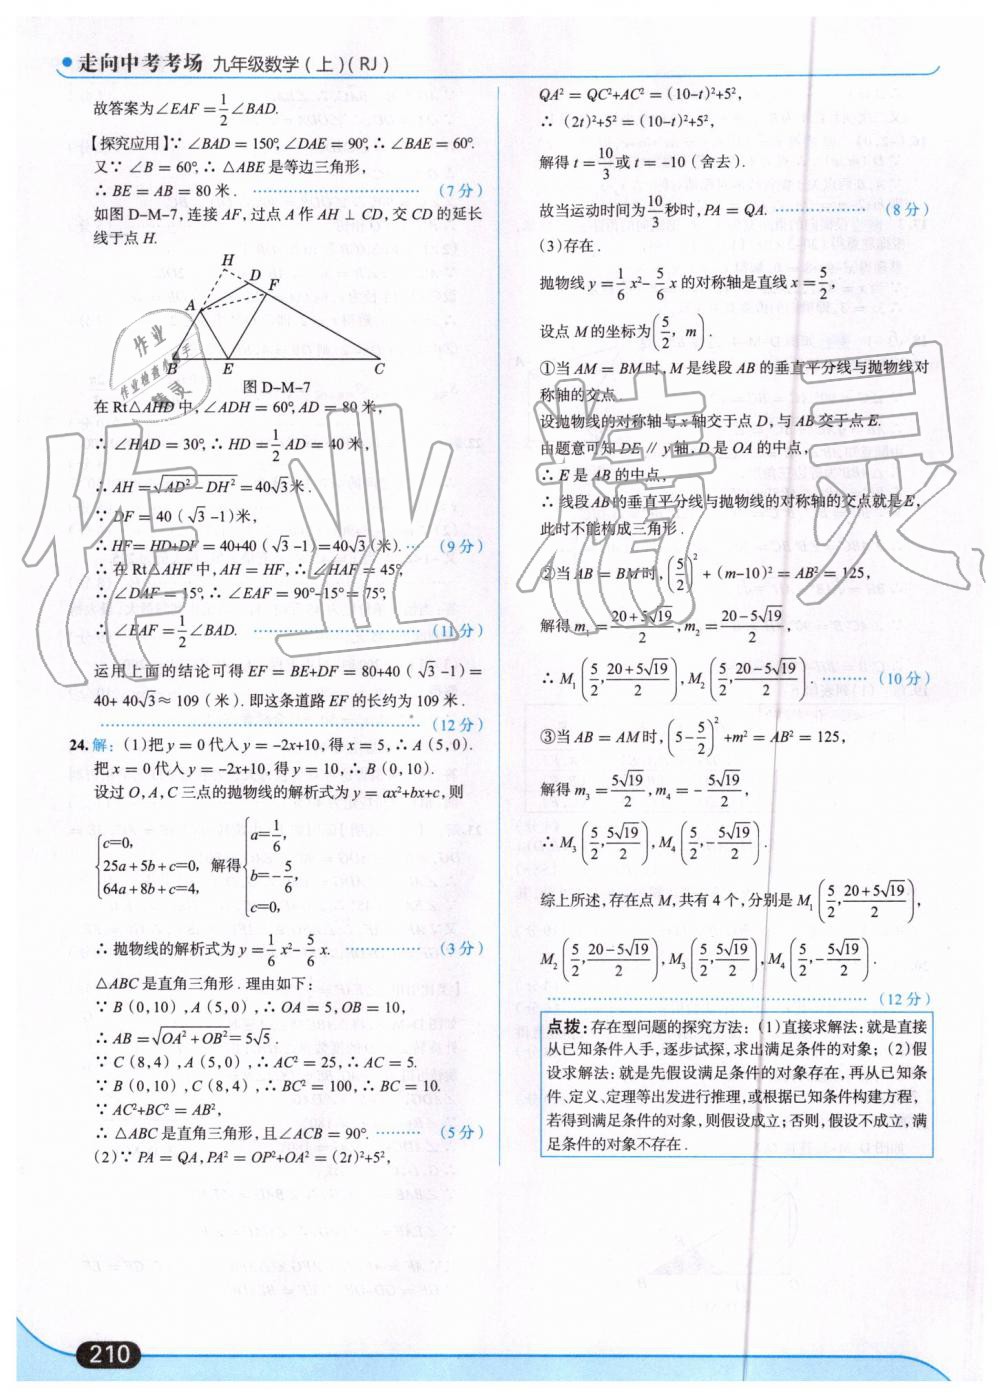 走向中考考场 九年级数学(上)(RJ)
故答案为∠EAF = 1/2 ∠BAD.
【探究应用】∵ ∠BAD = 150°, ∠DAE = 90°, ∴ ∠BAE = 60°.
又∵ ∠B = 60°, ∴ △ABE 是等边三角形,
∴ BE = AB = 80 米. (7分)
如图 D-M-7, 连接 AF, 过点 A 作 AH ⊥ CD, 交 CD 的延长
线于点 H.
H
D
F
A
B E C
图 D-M-7
在 Rt△AHD 中, ∠ADH = 60°, AD = 80 米,
∴ ∠HAD = 30°, ∴ HD = 1/2 AD = 40 米,
∴ AH = √(AD²-DH²) = 40√3 米.
∵ DF = 40(√3-1)米,
∴ HF = HD+DF = 40+40(√3-1)=40√3(米). (9分)
∴ 在 Rt△AHF 中, AH = HF, ∴ ∠HAF = 45°,
∴ ∠DAF = 15°, ∴ ∠EAF = 90°-15° = 75°,
∴ ∠EAF = 1/2 ∠BAD. (11分)
运用上面的结论可得 EF = BE+DF = 80+40(√3-1) =
40+40√3 ≈ 109(米). 即这条道路 EF 的长约为 109 米.
(12分)
24. 解: (1)把 y = 0 代入 y = -2x+10, 得 x = 5, ∴ A(5,0).
把 x = 0 代入 y = -2x+10, 得 y = 10, ∴ B(0,10).
设过 O, A, C 三点的抛物线的解析式为 y = ax²+bx+c, 则
{c=0, 25a+5b+c=0, 64a+8b+c=4, 解得 {a=1/6, b=-5/6, c=0,
∴ 抛物线的解析式为 y = 1/6 x² - 5/6 x. (3分)
△ABC 是直角三角形. 理由如下:
∵ B(0,10), A(5,0), ∴ OA = 5, OB = 10,
∴ AB = √(OA²+OB²) = 5√5.
∵ C(8,4), A(5,0), ∴ AC² = 25, ∴ AC = 5.
∵ B(0,10), C(8,4), ∴ BC² = 100, ∴ BC = 10.
∵ AC²+BC² = AB²,
∴ △ABC 是直角三角形, 且∠ACB = 90°. (5分)
(2) ∵ PA = QA, PA² = OP²+OA² = (2t)²+5²,
QA² = QC²+AC² = (10-t)²+5²,
∴ (2t)²+5² = (10-t)²+5²,
解得 t = 10/3 或 t = -10(舍去).
故当运动时间为 10/3 秒时, PA = QA. (8分)
(3)存在.
抛物线 y = 1/6 x² - 5/6 x 的对称轴是直线 x = 5/2,
设点 M 的坐标为(5/2, m).
①当 AM = BM 时, M 是线段 AB 的垂直平分线与抛物线对
称轴的交点.
设抛物线的对称轴与 x 轴交于点 D, 与 AB 交于点 E.
由题意可知 DE // y 轴, D 是 OA 的中点,
∴ E 是 AB 的中点,
∴ 线段 AB 的垂直平分线与抛物线的对称轴的交点就是 E,
此时不能构成三角形.
②当 AB = BM 时, (5/2)² + (m-10)² = AB² = 125,
解得 m₁ = (20+5√19)/2, m₂ = (20-5√19)/2,
∴ M₁(5/2, (20+5√19)/2), M₂(5/2, (20-5√19)/2). (10分)
③当 AB = AM 时, (5-5/2)² + m² = AB² = 125,
解得 m₃ = 5√19/2, m₄ = -5√19/2,
∴ M₃(5/2, 5√19/2), M₄(5/2, -5√19/2).
综上所述, 存在点 M, 共有 4 个, 分别是 M₁(5/2, (20+5√19)/2),
M₂(5/2, (20-5√19)/2), M₃(5/2, 5√19/2), M₄(5/2, -5√19/2).
(12分)
点拨: 存在型问题的探究方法: (1)直接求解法: 就是直接
从已知条件入手, 逐步试探, 求出满足条件的对象; (2)假
设求解法: 就是先假设满足条件的对象存在, 再从已知条
件、定义、定理等出发进行推理, 或根据已知条件构建方程,
若得到满足条件的对象, 则假设成立; 否则, 假设不成立, 满
足条件的对象不存在.
210
作业精灵